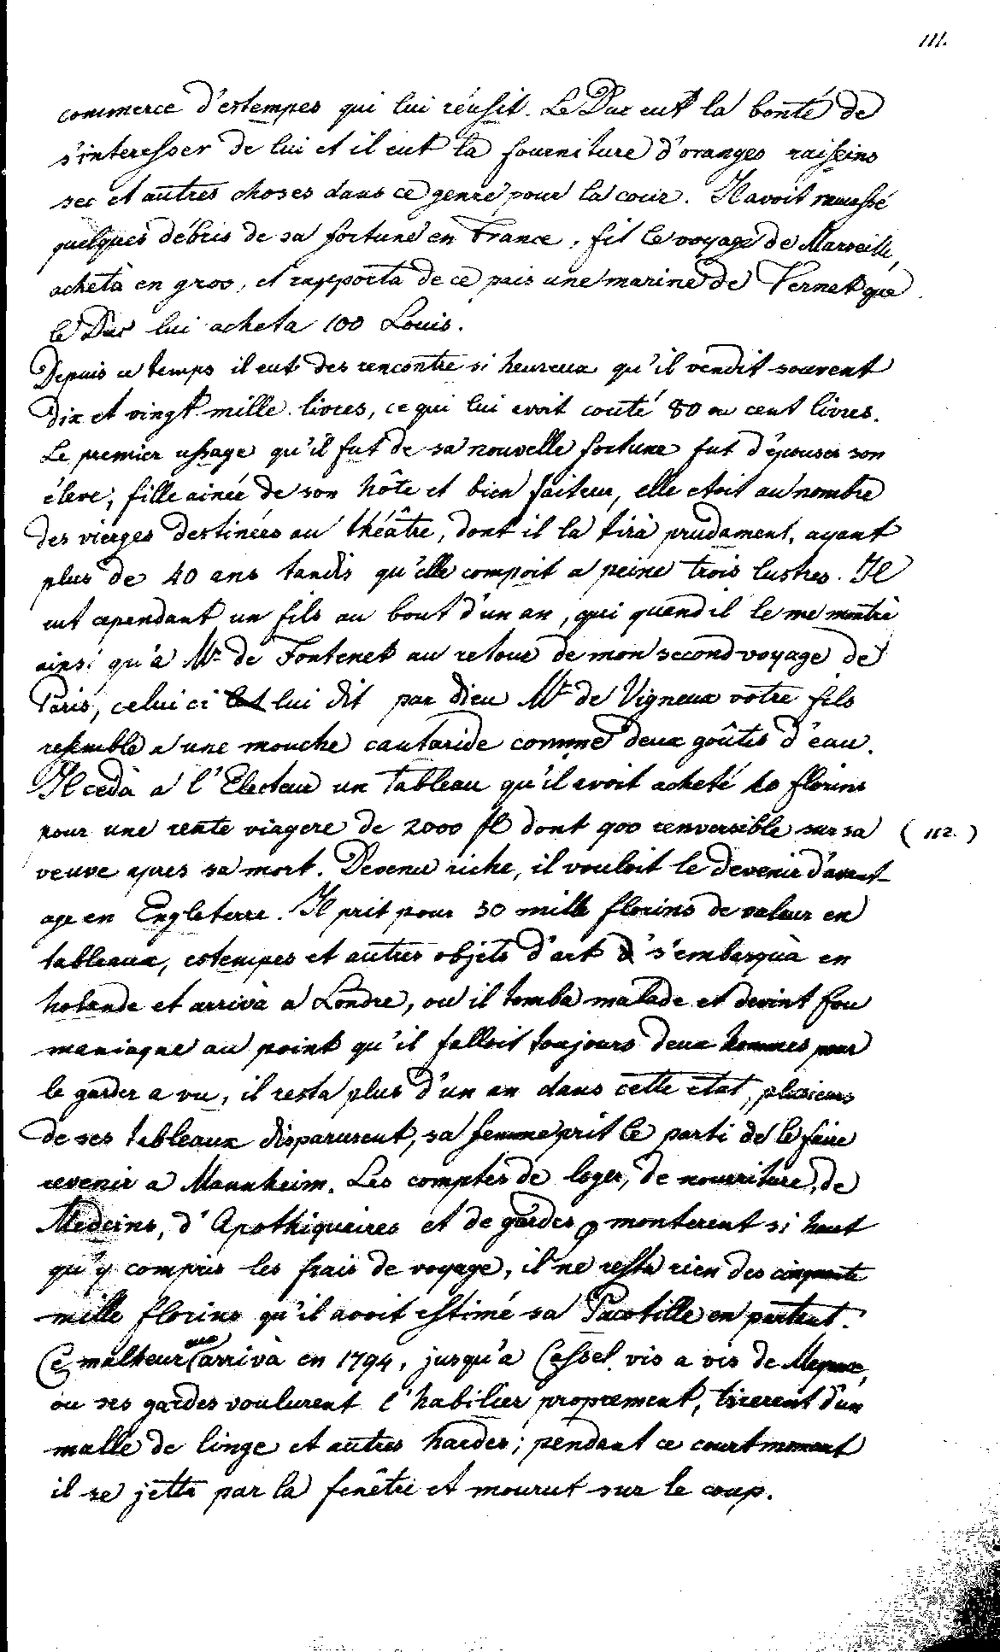 111.
commerce d'estempes qui lui réussit. Le Duc eut la bonté de
s'interesser de lui et il eut la fourniture d'oranges raiseins
sec et autres choses dans ce genre pour la cour. Il avoit ramassé
quelques débris de sa fortune en France, fit le voyage de Marseille,
achetà en gros, et rapporta de ce païs une marine de Vernet que
le Duc lui acheta 100 Louis.
Depuis ce temps il eut des rencontre si heureux qu'il vendit souvent
dix et vingt mille livres, ce qui lui avoit couté 80 ou cent livres.
Le premier ussage qu'il fut de sa nouvelle fortune fut d'épouser son
éleve, fille ainée de son hôte et bien faiteur, elle etoit au nombre
des vierges destinées au théâtre, dont il la tirà prudament, ayant
plus de 40 ans tandis qu'elle compoit a peine trois lustres. Il
eut cependant un fils au bout d'un an, qui quand il le me montrè
ainsi qu'à Mr. de Fontenet au retour de mon second voyage de
Paris, celui ci lui dit par dieu Mr. de Vigneux votre fils
resemble a une mouche cantaride comme deux goûtes d'eau.
Il cedà a l'Electeur un tableau qu'il avoit acheté 40 florins
pour une rente viagere de 2000 fl dont 900 renversible sur sa (112.)
veuve apres sa mort. Devenu riche, il vouloit le devenir d'avant-
age en Engleterre. Il prit pour 50 mille florins de valeur en
tableaux, estempes et autres objets d'art s'embarquà en
holande et arrivà a Londre, ou il tomba malade et devint fou
maniaque au point qu'il falloit toujours deux hommes pour
le garder a vu, il resta plus d'un an dans cette etat, plusieurs
de ses tableaux disparurent, sa femme prit le parti de le faire
revenir a Mannheim. Les comptes de loger, de nourriture, de
Medecins, d'Apothiquaires et de gardes monterent si haut
qu'y compris les frais de voyage, il ne resta rien des cinquante
mille florins qu'il avoit estimé sa Pacotille en partant.
Ce malheur arrivà en 1794, jusqu'a Cassel vis a vis de Mayence,
ou ses gardes voulurent l'habilier proprement, tirerent d'un
malle de linge et autres hardes; pendant ce court moment
il se jetta par la fenêtre et mourut sur le coup.